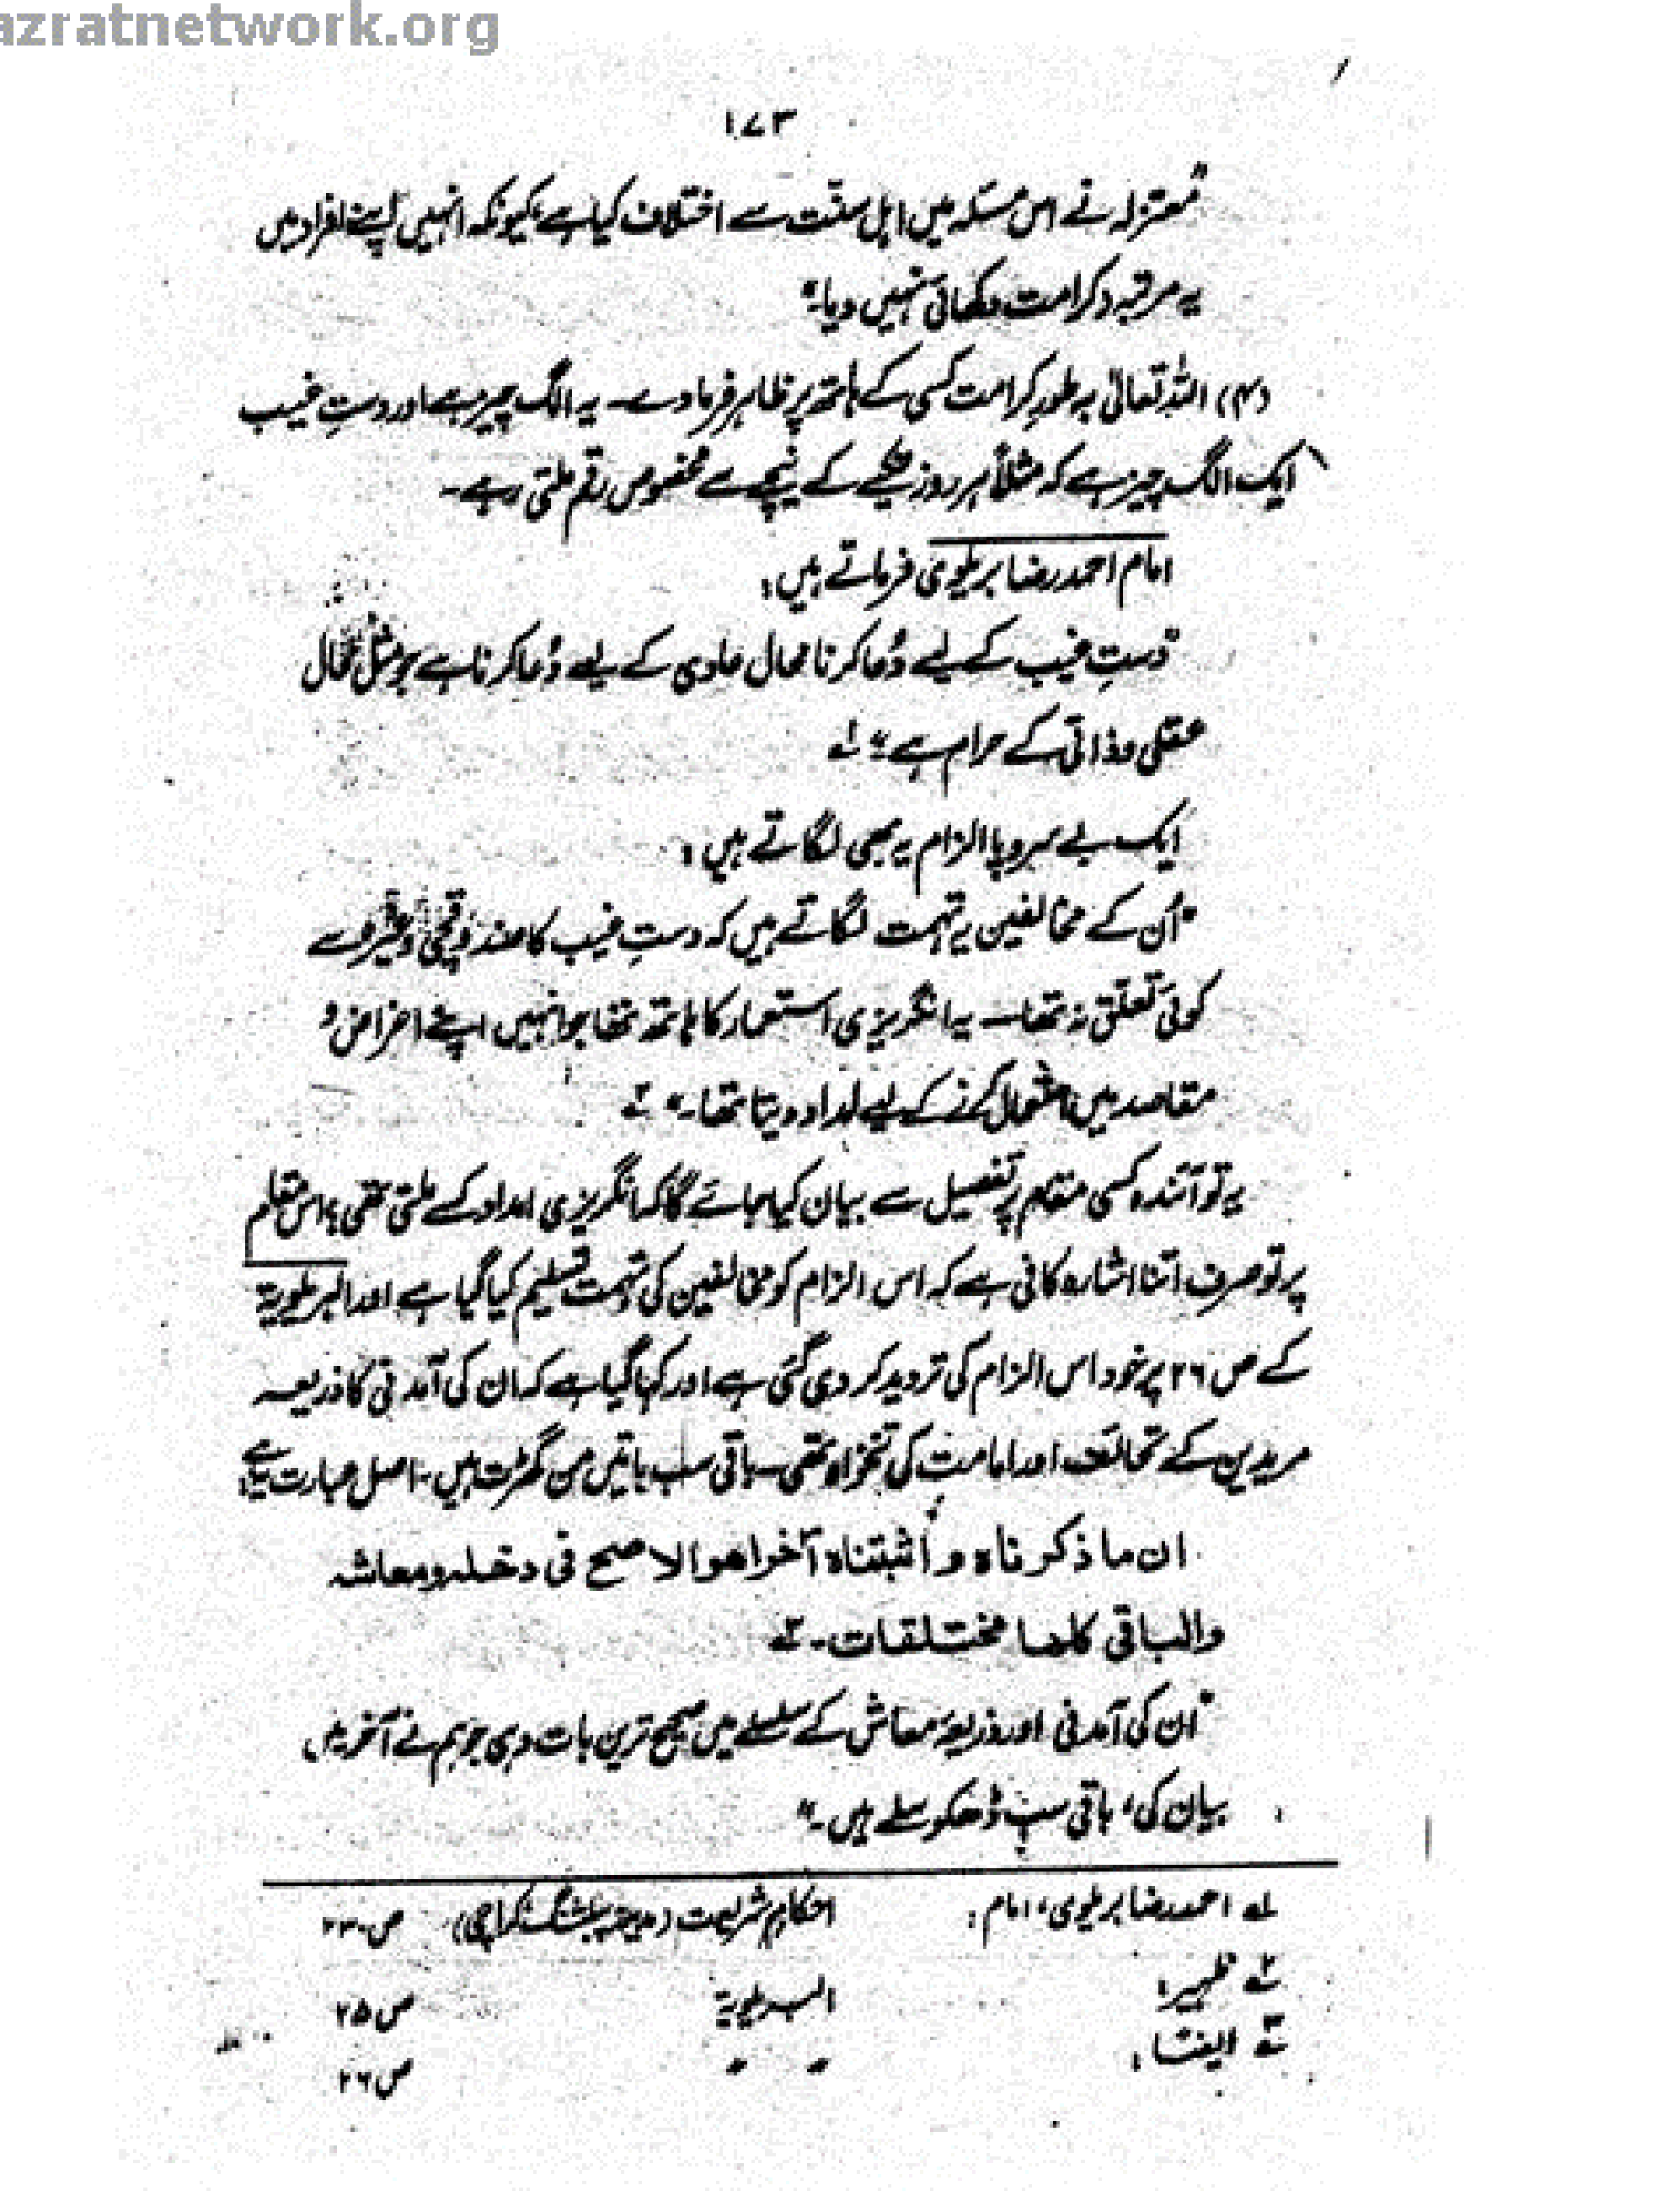 azratnetwork.org
۱۷۳
"معتزلہ نے اس مسئلہ میں اہل سنّت سے اختلاف کیا ہے، کیونکہ انہیں اپنے افراد میں
یہ مرتبہ و کرامت دکھائی نہیں دیا۔"
(۴) اللہ تعالیٰ بہ طورِ کرامت کسی کے ہاتھ پر ظاہر فرما دے۔ یہ الگ چیز ہے اور دستِ غیب
ایک الگ چیز ہے کہ مثلاً ہر روز تکیے کے نیچے سے مخصوص رقم ملتی رہے۔
امام احمد رضا بریلوی فرماتے ہیں:
"دستِ غیب کے لیے دُعا کرنا محال عادی کے لیے دُعا کرنا ہے جو مثل محال
عقلی و ذاتی کے حرام ہے" لے
ایک بے سروپا الزام یہ بھی لگاتے ہیں:
"اُن کے مخالفین یہ تہمت لگاتے ہیں کہ دستِ غیب کا صندوقچی وغیرہ سے
کوئی تعلّق نہ تھا۔ یہ انگریزی استعمار کا ہاتھ تھا جو انہیں اپنے اغراض و
مقاصد میں استعمال کرنے کے لیے امداد دیتا تھا۔" ۲ے
یہ تو آئندہ کسی مقام پر تفصیل سے بیان کیا جائے گا کہ انگریزی امداد کسے ملتی تھی؟ اس مقام
پر تو صرف اتنا اشارہ کافی ہے کہ اس الزام کو مخالفین کی تہمت تسلیم کیا گیا ہے اور البریلویۃ
کے ص ۲۶ پر خود اس الزام کی تردید کر دی گئی ہے اور کہا گیا ہے کہ ان کی آمدنی کا ذریعہ
مریدین کے تحائف اور امامت کی تنخواہ تھی۔ باقی سب باتیں من گھڑت ہیں۔ اصل عبارت یہ ہے:
ان ما ذکرناہ و أثبتناہ آخرا ھو الاصح فی دخلہ و معاشہ
والباقی کلھا مختلقات۔ ۳ے
"ان کی آمدنی اور ذریعۂ معاش کے سلسلے میں صحیح ترین بات وہی جو ہم نے آخر میں
بیان کی، باقی سب ڈھکوسلے ہیں۔"
لے احمد رضا بریلوی، امام: احکامِ شریعت (مدینہ پبلشنگ، کراچی) ص ۲۳۰
۲ے ظہیر: البریلویۃ ص ۲۵
۳ے ایضًا: " " ص ۲۶